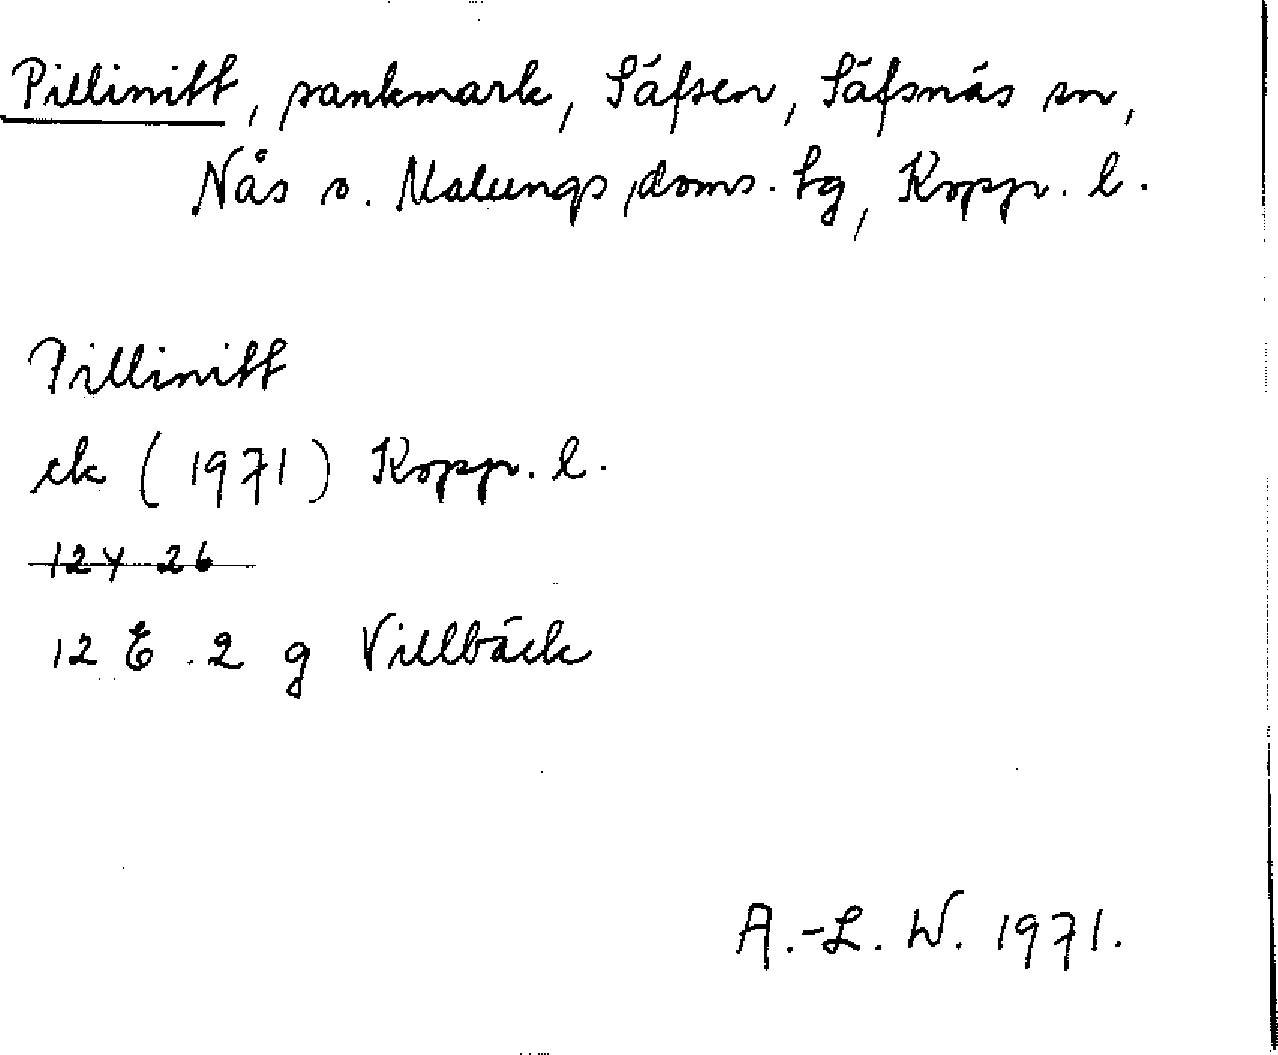 Pillinitt, sankmark, Säfsen, Säfsnäs sn,
Nås o. Malungs doms. tg, Kopp. l.
Pillinitt
ek (1971) Kopp. l.
12Y 26
12 E . 2 g Villbäck
A.-L. W. 1971.